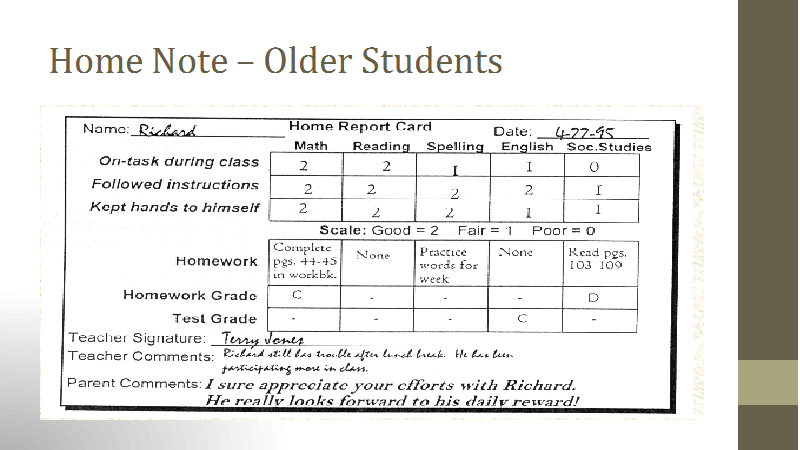 Home Note – Older Students
Name: Richard Home Report Card Date: 4-27-95
Math Reading Spelling English Soc.Studies
On-task during class 2 2 1 1 0
Followed instructions 2 2 2 2 1
Kept hands to himself 2 2 2 1 1
Scale: Good = 2 Fair = 1 Poor = 0
Homework Complete pgs. 44-45 in workbk. None Practice words for week None Read pgs. 103-109
Homework Grade C - - - D
Test Grade - - - C -
Teacher Signature: Terry Jones
Teacher Comments: Richard still has trouble after lunch break. He has been
participating more in class.
Parent Comments: I sure appreciate your efforts with Richard.
He really looks forward to his daily reward!